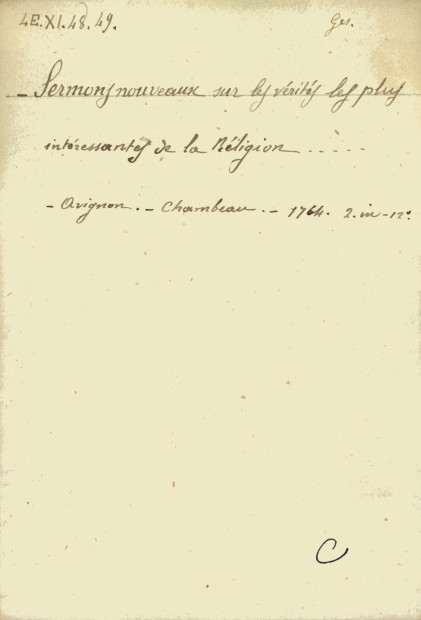 4E.XI.48.49. Ges.
– Sermons nouveaux sur les vérités les plus
intéressantes de la Réligion .....
– Avignon. – Chambeau. – 1764. 2. in-12º
C